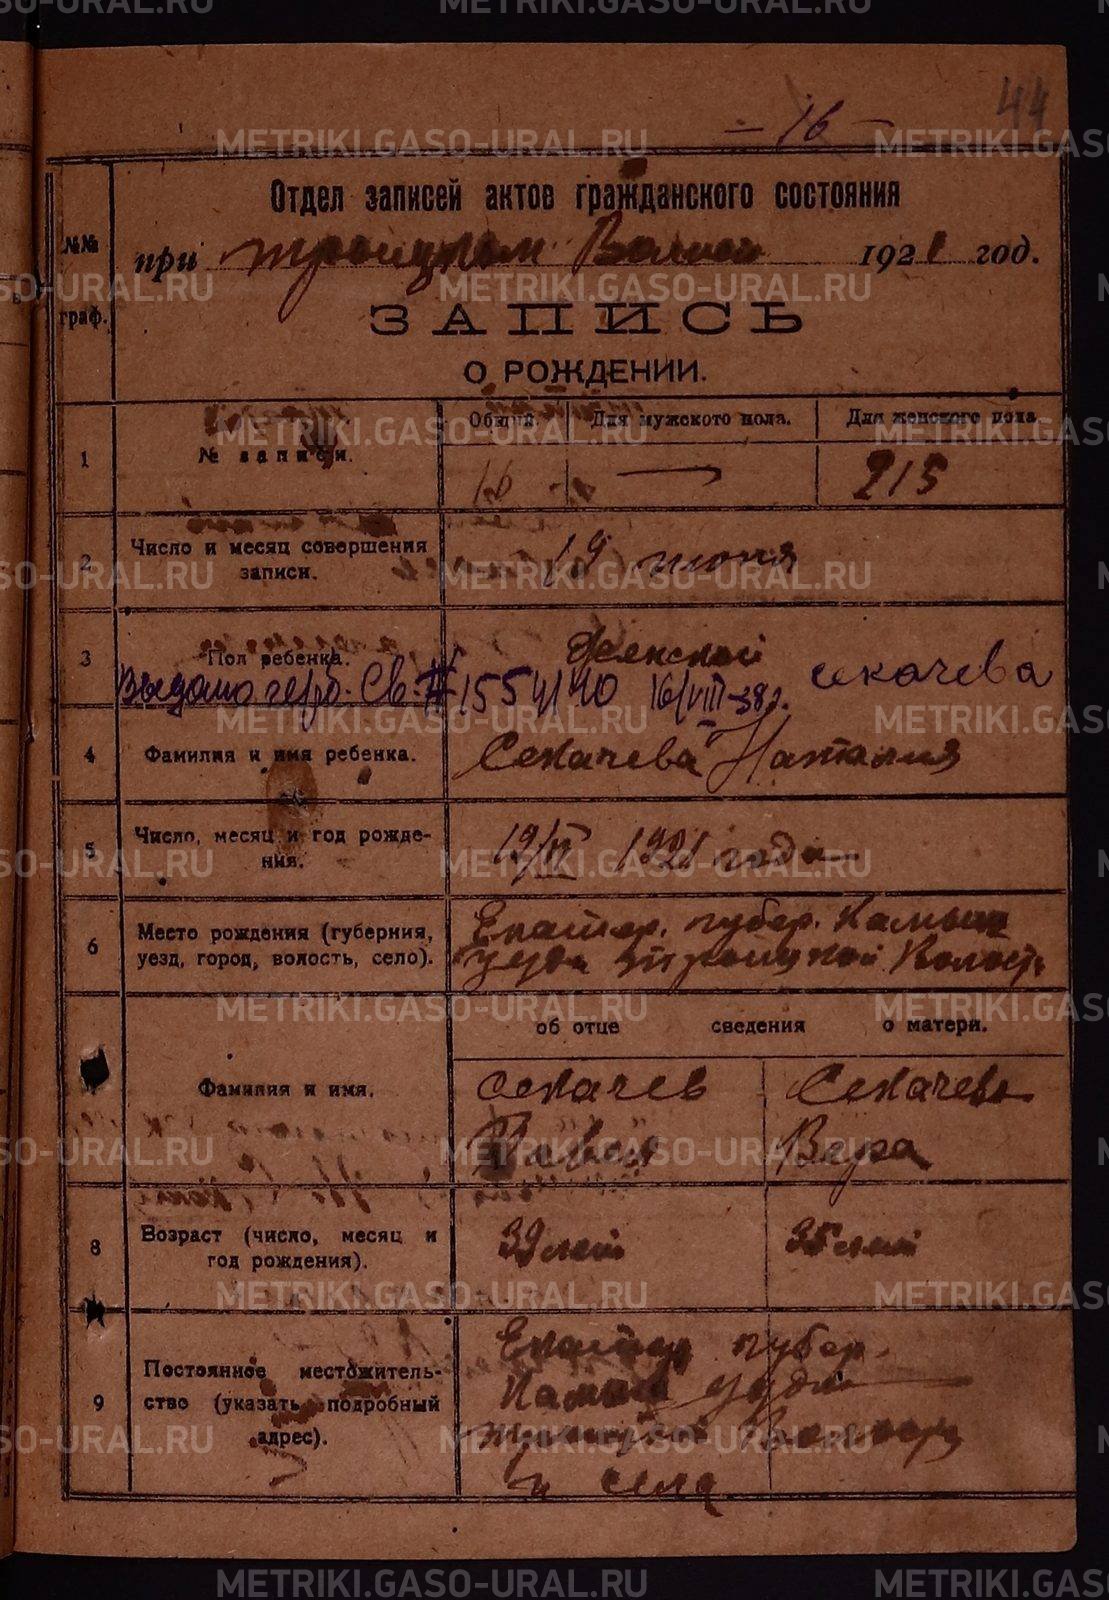 44
- 16 -
Отдел записей актов гражданского состояния
№№ граф.
при троицком Волисп 1921 год.
ЗАПИСЬ
О РОЖДЕНИИ.
1
№ записи.
Общий. Для мужского пола. Для женского пола
16 — 215
2
Число и месяц совершения записи.
19 июня
3
Пол ребенка.
Женской
Выдано Св. № 1554140 16/VIII-38г. секачева
4
Фамилия и имя ребенка.
Секачева Наталия
5
Число, месяц и год рождения.
19/VI 1921 года
6
Место рождения (губерния, уезд, город, волость, село).
Екатер. губер. Камыш
уезда троицкой Волость
об отце сведения о матери.
Фамилия и имя.
Секачев Секачева
Павел Вера
8
Возраст (число, месяц и год рождения).
39 лет 35 лет
9
Постоянное местожительство (указать подробный адрес).
Екатер губер.
Камыш уезда
троицкой Волости
и села
METRIKI.GASO-URAL.RU